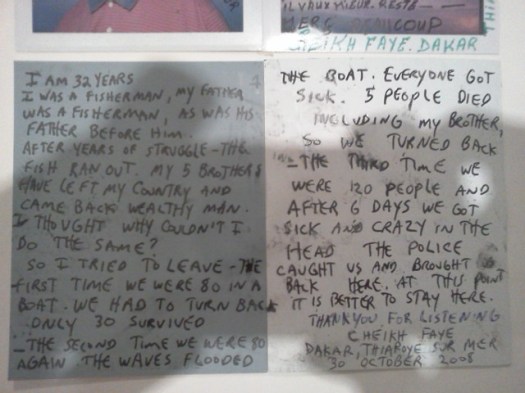 IL VAUX MIEUR. RESTE
MERC BEAUCOUP
CHEIKH FAYE. DAKAR
I AM 32 YEARS
I WAS A FISHERMAN, MY FATHER
WAS A FISHERMAN, AS WAS HIS
FATHER BEFORE HIM.
AFTER YEARS OF STRUGGLE - THE
FISH RAN OUT. MY 5 BROTHERS
HAVE LEFT MY COUNTRY AND
CAME BACK WEALTHY MAN.
I THOUGHT WHY COULDN'T I
DO THE SAME?
SO I TRIED TO LEAVE - THE
FIRST TIME WE WERE 80 IN A
BOAT. WE HAD TO TURN BACK
ONLY 30 SURVIVED
- THE SECOND TIME WE WERE 80
AGAIN. THE WAVES FLOODED
THE BOAT. EVERYONE GOT
SICK. 5 PEOPLE DIED
INCLUDING MY BROTHER,
SO WE TURNED BACK
- THE THIRD TIME WE
WERE 120 PEOPLE AND
AFTER 6 DAYS WE GOT
SICK AND CRAZY IN THE
HEAD THE POLICE
CAUGHT US AND BROUGHT
BACK HERE. AT THIS POINT
IT IS BETTER TO STAY HERE.
THANK YOU FOR LISTENING
CHEIKH FAYE
DAKAR, THIAROYE SUR MER
30 OCTOBER 2008